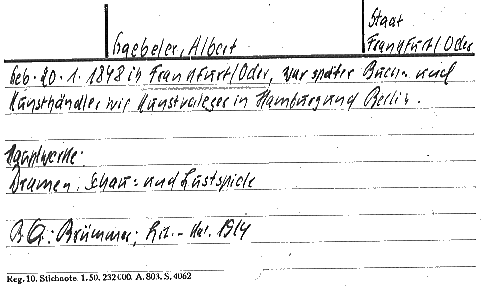 Staat
Gaebeler, Albert
Frankfurt/Oder
Geb. 20. 1. 1848 in Frankfurt/Oder, war später Buch- und
Kunsthändler wie Kunstverleger in Hamburg und Berlin.
Hauptwerke:
Dramen: Schau- und Lustspiele
B Q: Brümmer; Lit.-Kal. 1914
Reg. 10. Stichnote. 1. 50. 232 000. A. 803. S. 4062